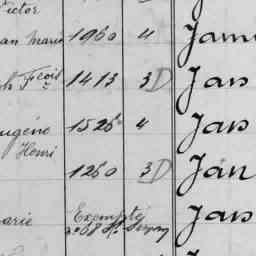 Victor
an Marie 1960 4 Jam
h Fçois 1413 3D Jan
ugéne 1526 4 Jan
Henri
1260 3D Jan
arie Exempté Jan
n° 68